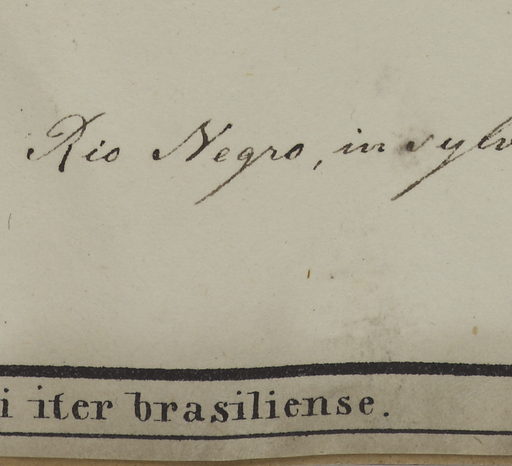 Rio Negro, in sylv
i iter brasiliense.